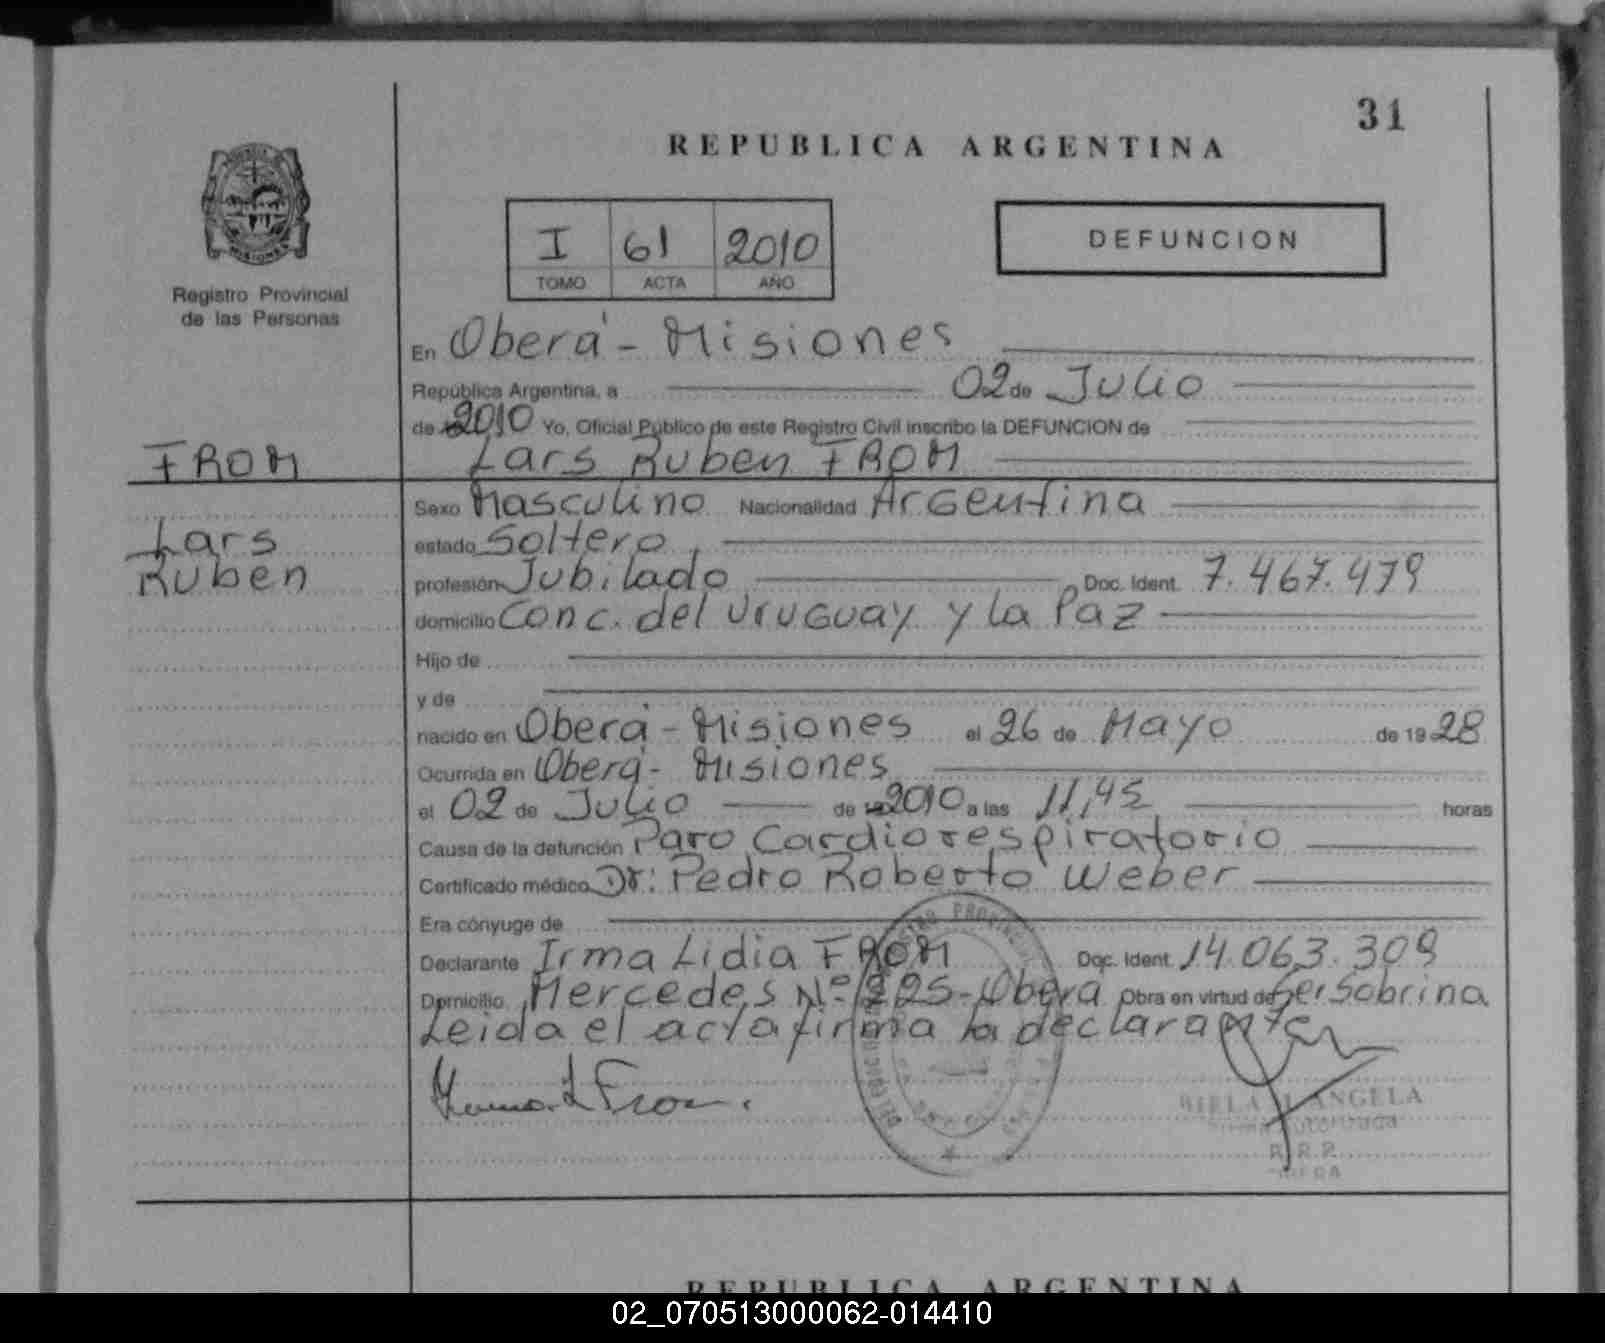 31
REPUBLICA ARGENTINA
I 61 2010
TOMO ACTA AÑO
DEFUNCION
Registro Provincial
de las Personas
En Oberá - Misiones
República Argentina, a 02 de Julio
de 2010 Yo, Oficial Público de este Registro Civil inscribo la DEFUNCION de
FROM Lars Ruben FROM
Sexo Masculino Nacionalidad Argentina
Lars estado Soltero
Ruben profesión Jubilado Doc. Ident. 7.467.479
domicilio Conc. del Uruguay y la Paz
Hijo de
y de
nacido en Oberá - Misiones el 26 de Mayo de 1928
Ocurrida en Oberá - Misiones
el 02 de Julio de 2010 a las 11,45 horas
Causa de la defunción Paro Cardiorespiratorio
Certificado médico Dr: Pedro Roberto Weber
Era cónyuge de
Declarante Irma Lidia FROM Doc. Ident. 14.063.309
Domicilio Mercedes Nº 225 - Oberá Obra en virtud de Ser Sobrina
Leida el acta firma la declarante
Irma L From.
REGISTRO PROVINCIAL
BIELA M ANGELA
Firma Autorizada
R.R.P.
OBERA
REPUBLICA ARGENTINA
02_070513000062-014410